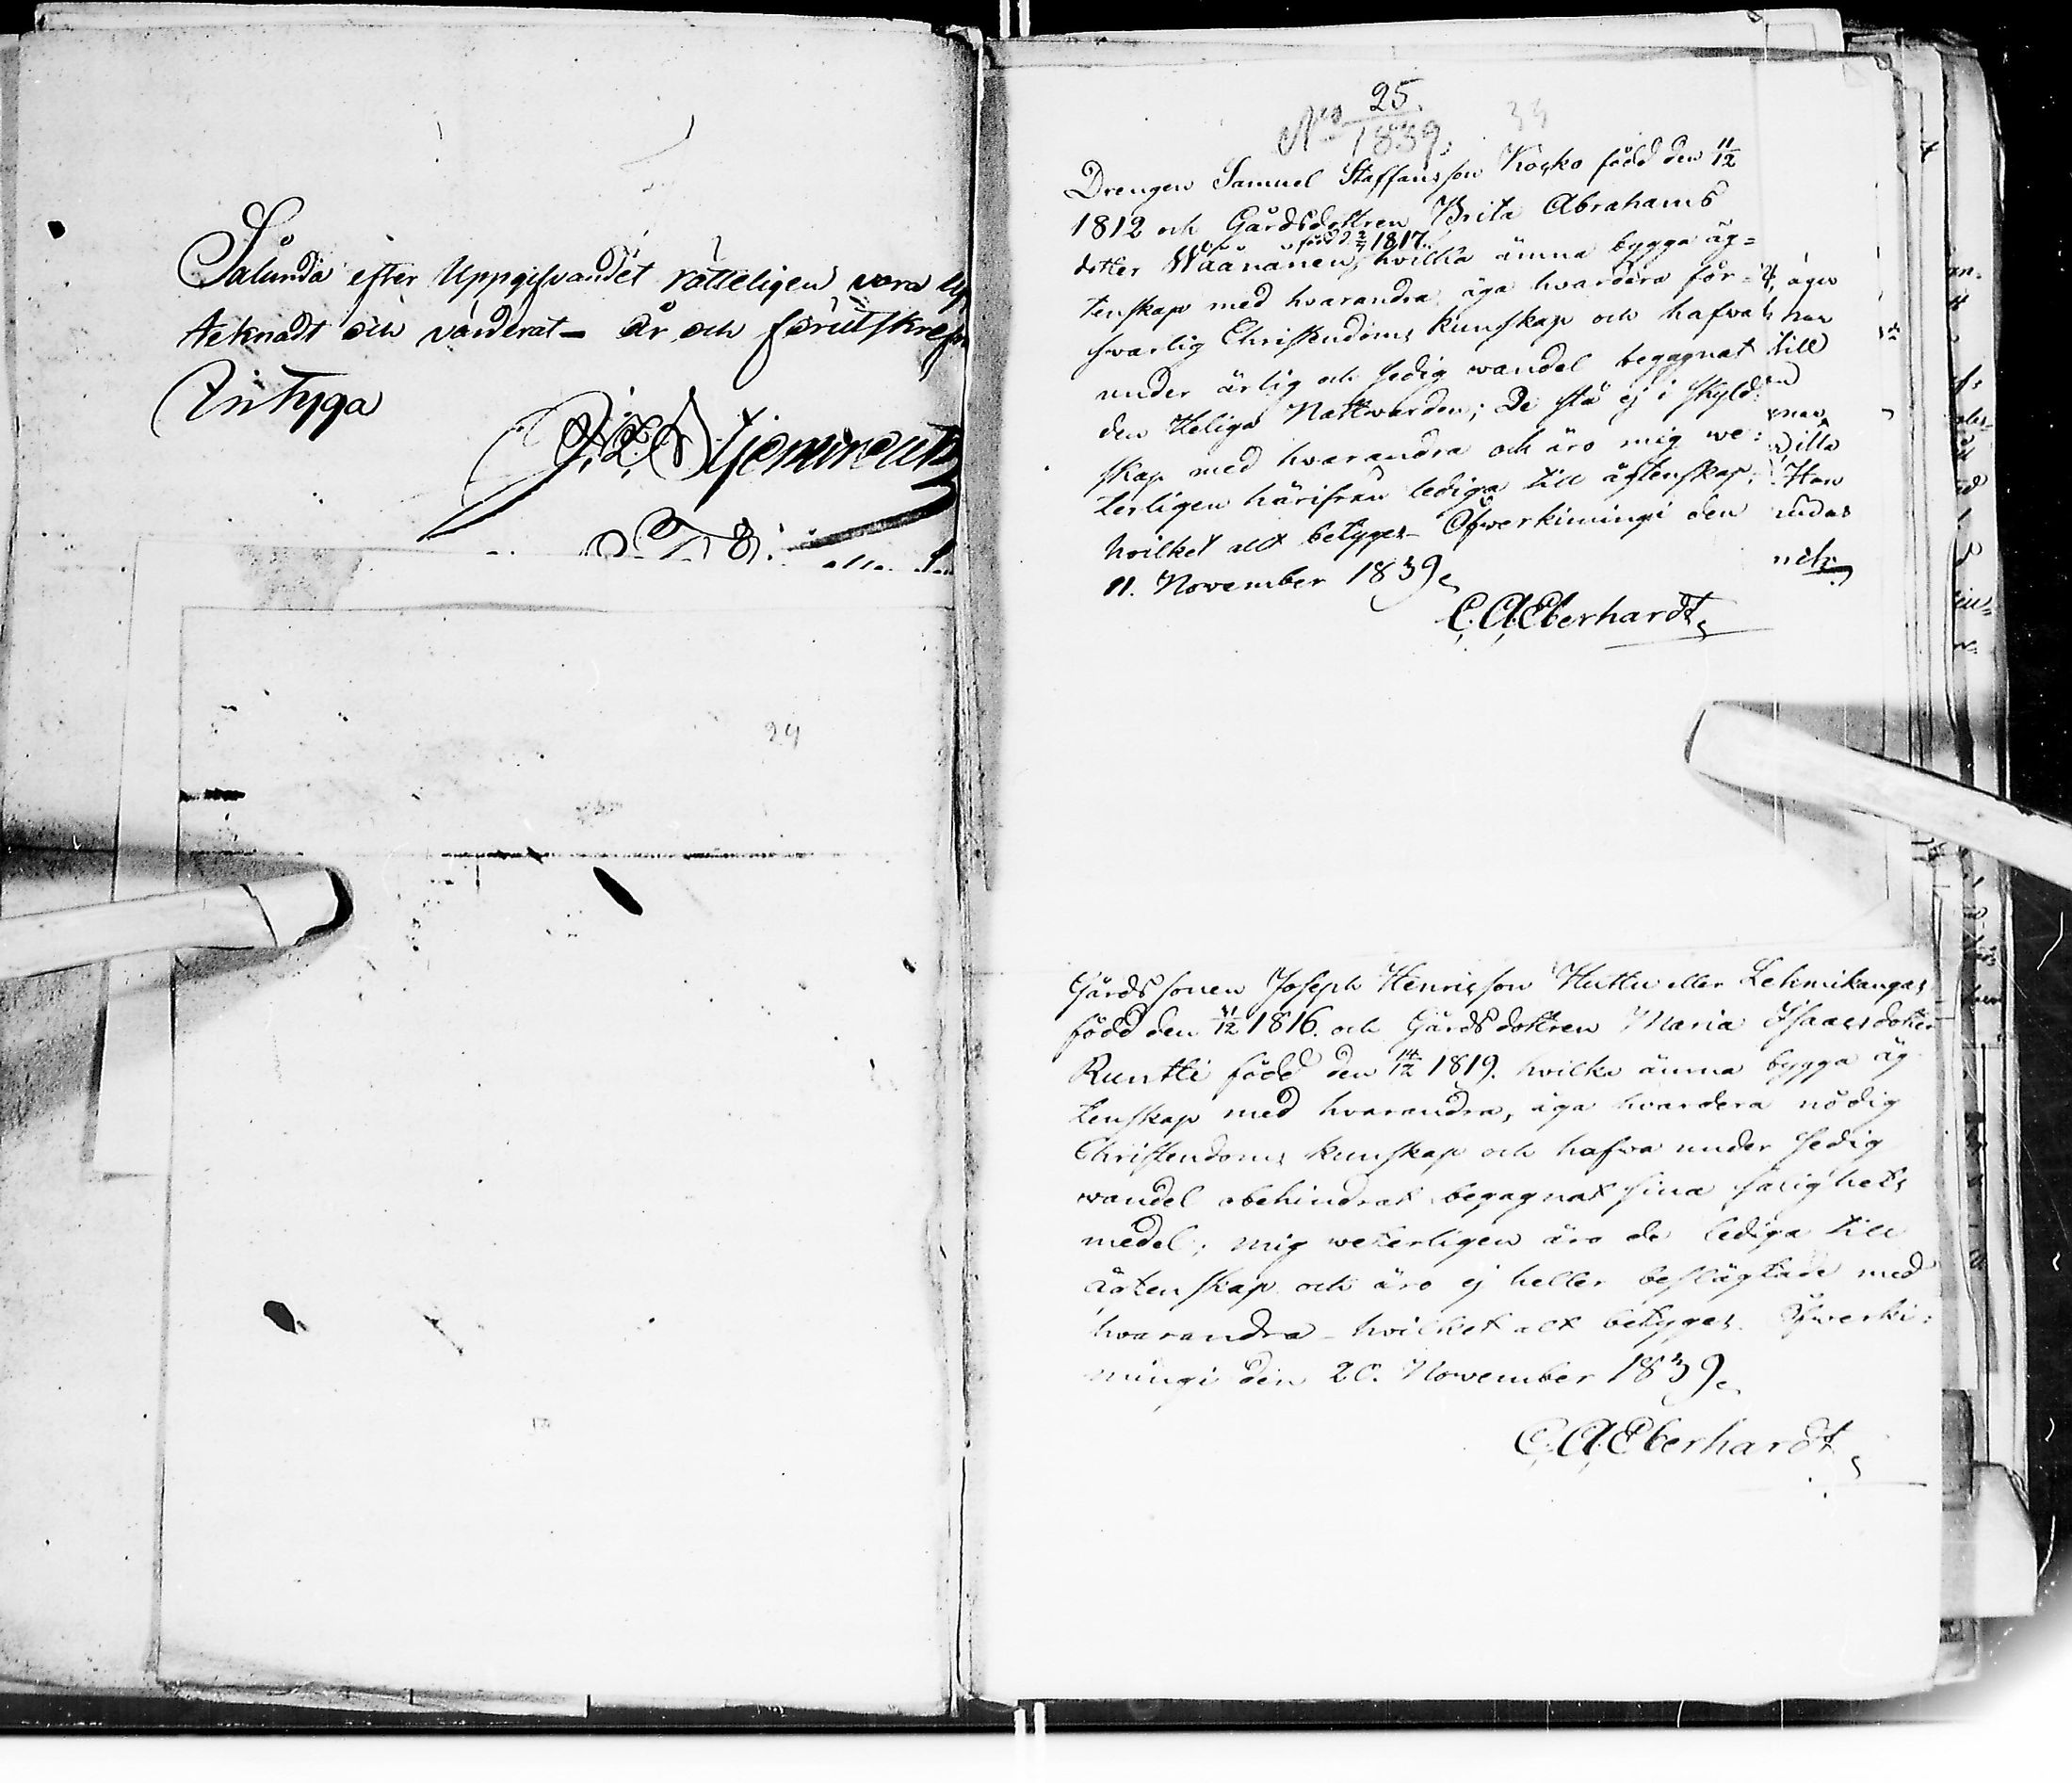 Sålunda efter Uppgifvandet rätteligen vara up
teknadt och värderat – År och förutskrefn
Intyga
24
25.
No 1839.
34
Drengen Samuel Staffansson Kosko född den 11/12
1812 och Gårdsdottren Brita Abrahams
dotter Wäänänen född d. 2/7 1817. hvilka ämna bygga äg=
tenskap med hvarandra, äga hvardera för=
svarlig Christendoms kunskap och hafwa
under ärlig och sedig wandel begagnat
den Heliga Nattwarden; De stå ej i skyld=
skap med hvarandra och äro mig we=
terligen härifrån lediga till ägtenskap;
hvilket allt betyges Öfwerkimingi den
11. November 1839.
C. A. Eberhardt
äger
har
till
Hon
Gårdssonen Joseph Henricsson Huttu eller Lehmikangas
född den 11/12 1816. och Gårdsdottren Maria Isaacsdotter
Runtti född den 14/12 1819. hvilka ämna bygga äg
tenskap med hvarandra, äga hvardera nödig
Christendoms kunskap och hafwa under sedig
wandel obehindrat begagnat sina salighets
medel; mig weterligen äro de lediga till
ägtenskap och äro ej heller beslägtade med
hvarandra – hvilket alt betyges. Öfwerki=
mingi den 20. November 1839.
C. A. Eberhardt